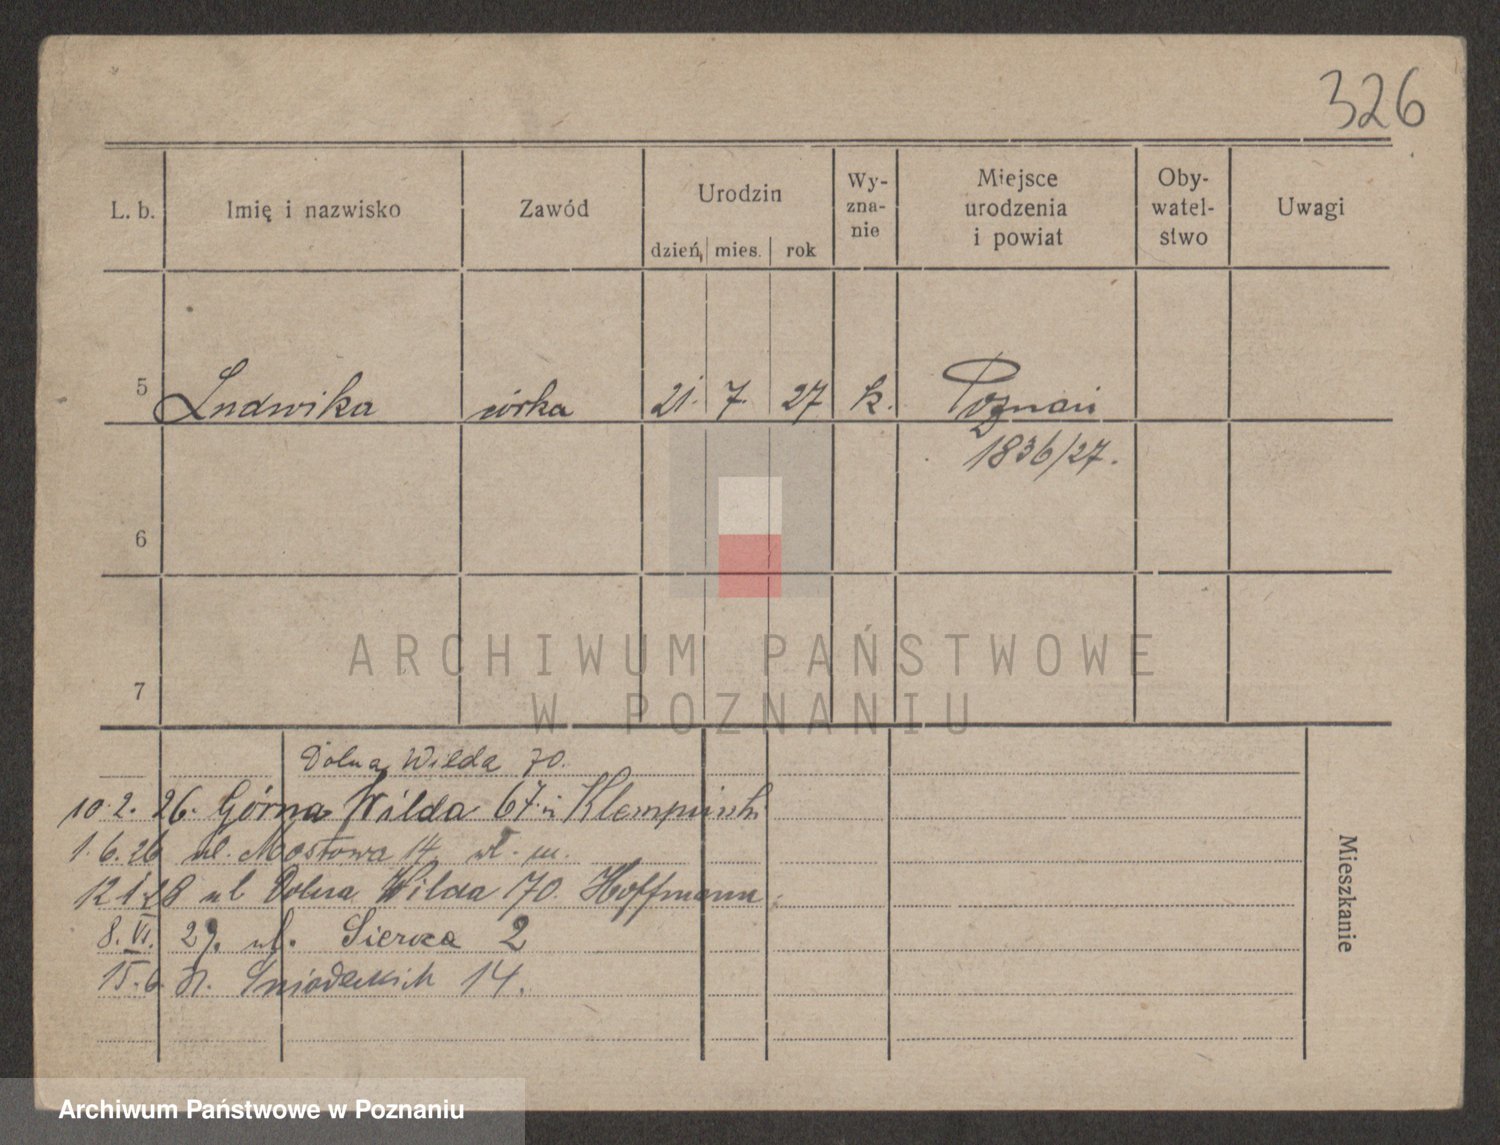 326
L. b. Imię i nazwisko Zawód Urodzin dzień mies. rok Wy-zna-nie Miejsce urodzenia i powiat Oby-watel-stwo Uwagi
5 Ludwika córka 21. 7. 27 k. Poznań
1836/27.
6
7
ARCHIWUM PAŃSTWOWE
W POZNANIU
Dolna Wilda 70.
10. 2. 26. Górna Wilda 67.
1. 6. 26 ul. Mostowa 14
12 1 28 ul Dolna Wilda 70. Hoffmann
8. VI. 29. ul. Sieroca 2
15. 6. Śniadeckich 14.
Mieszkanie
Archiwum Państwowe w Poznaniu